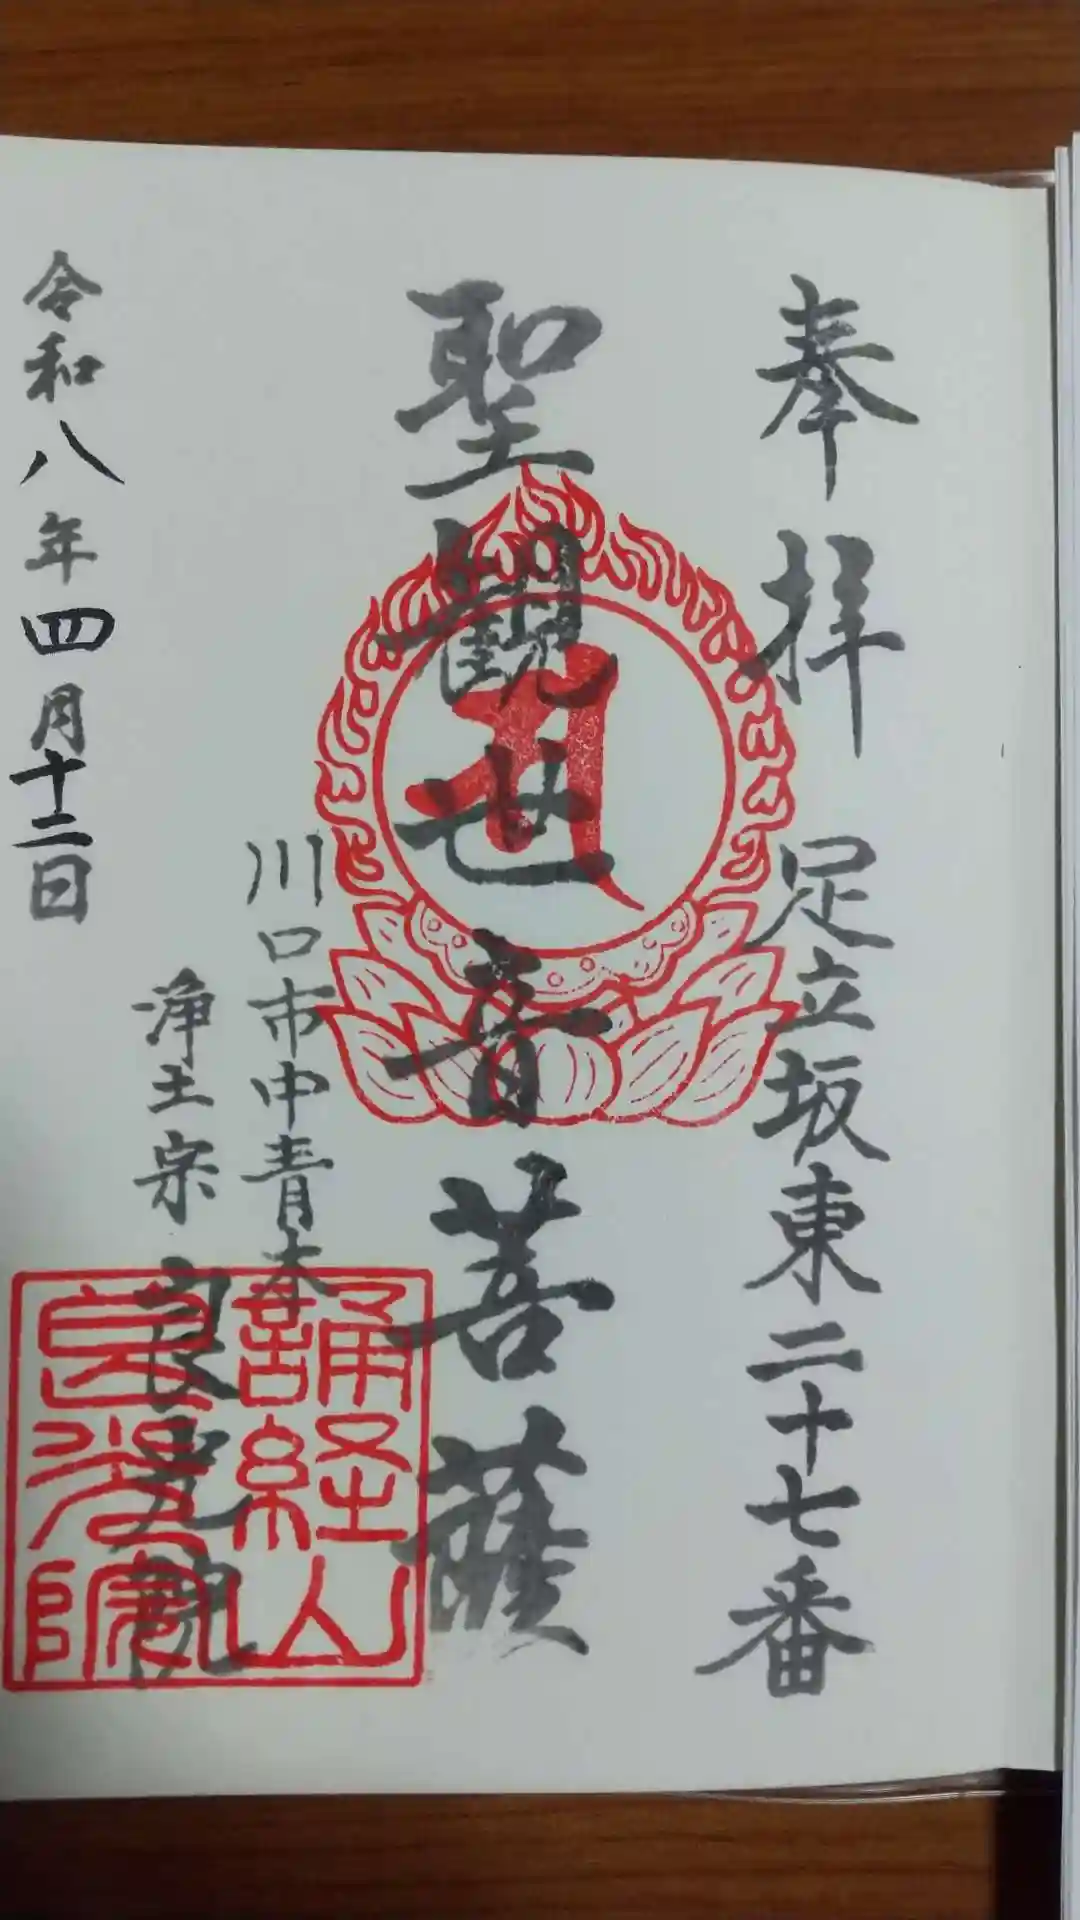 奉拝
足立坂東二十七番
聖観世音菩薩
川口市中青木
浄土宗 良光院
令和八年四月十二日
誦経山
良光院